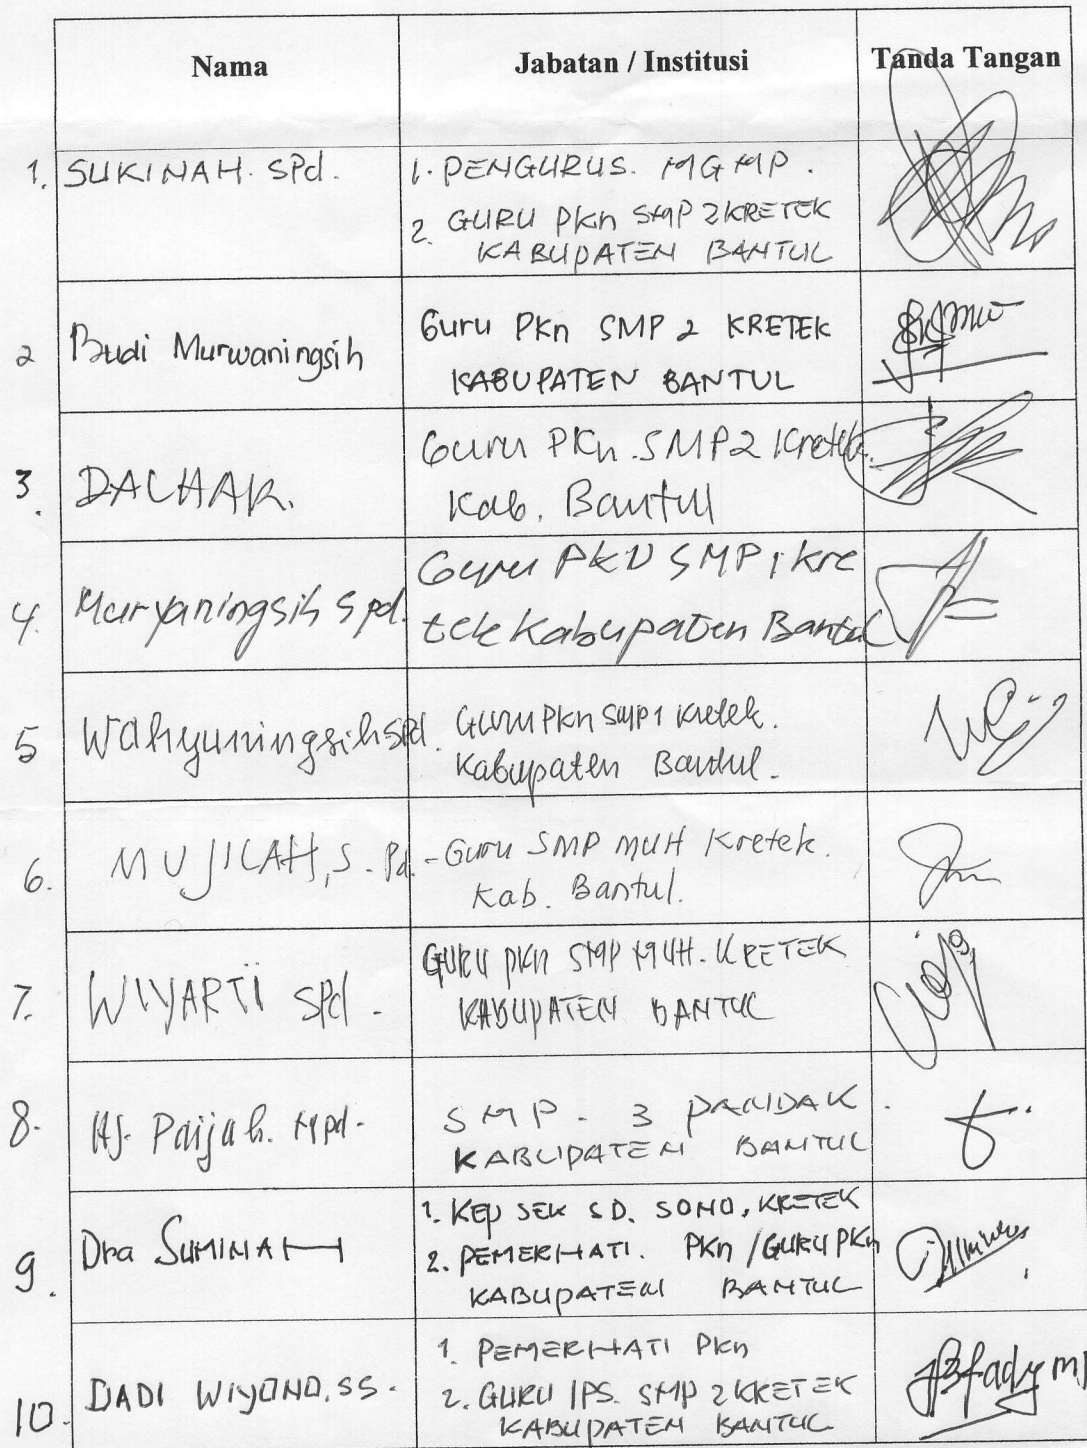 Nama Jabatan / Institusi Tanda Tangan
1. SUKINAH. SPd. 1. PENGURUS. MGMP.
2. GURU PKn SMP 2 KRETEK
KABUPATEN BANTUL
2 Budi Murwaningsih Guru PKn SMP 2 KRETEK
KABUPATEN BANTUL
3. DACHAR. Guru PKn. SMP 2 Kretek.
Kab. Bantul
4. Muryaningsih Spd. Guru PKN SMP 1 Kre
tek Kabupaten Bantul
5 Wahyuningsih SPd. Guru PKn SMP 1 Kretek.
Kabupaten Bantul.
6. MUJILAH, S. Pd. - Guru SMP MUH Kretek.
Kab. Bantul.
7. WIYARTI SPd. GURU PKn SMP MUH. KRETEK
KABUPATEN BANTUL
8. Hj. Paijah. MPd. SMP. 3 PANDAK.
KABUPATEN BANTUL
9. Dra SUMINAH 1. KEP SEK SD. SONO, KRETEK
2. PEMERHATI. PKn / GURU PKn
KABUPATEN BANTUL
10. DADI WIYONO, SS. 1. PEMERHATI PKn
2. GURU IPS. SMP 2 KRETEK
KABUPATEN BANTUL